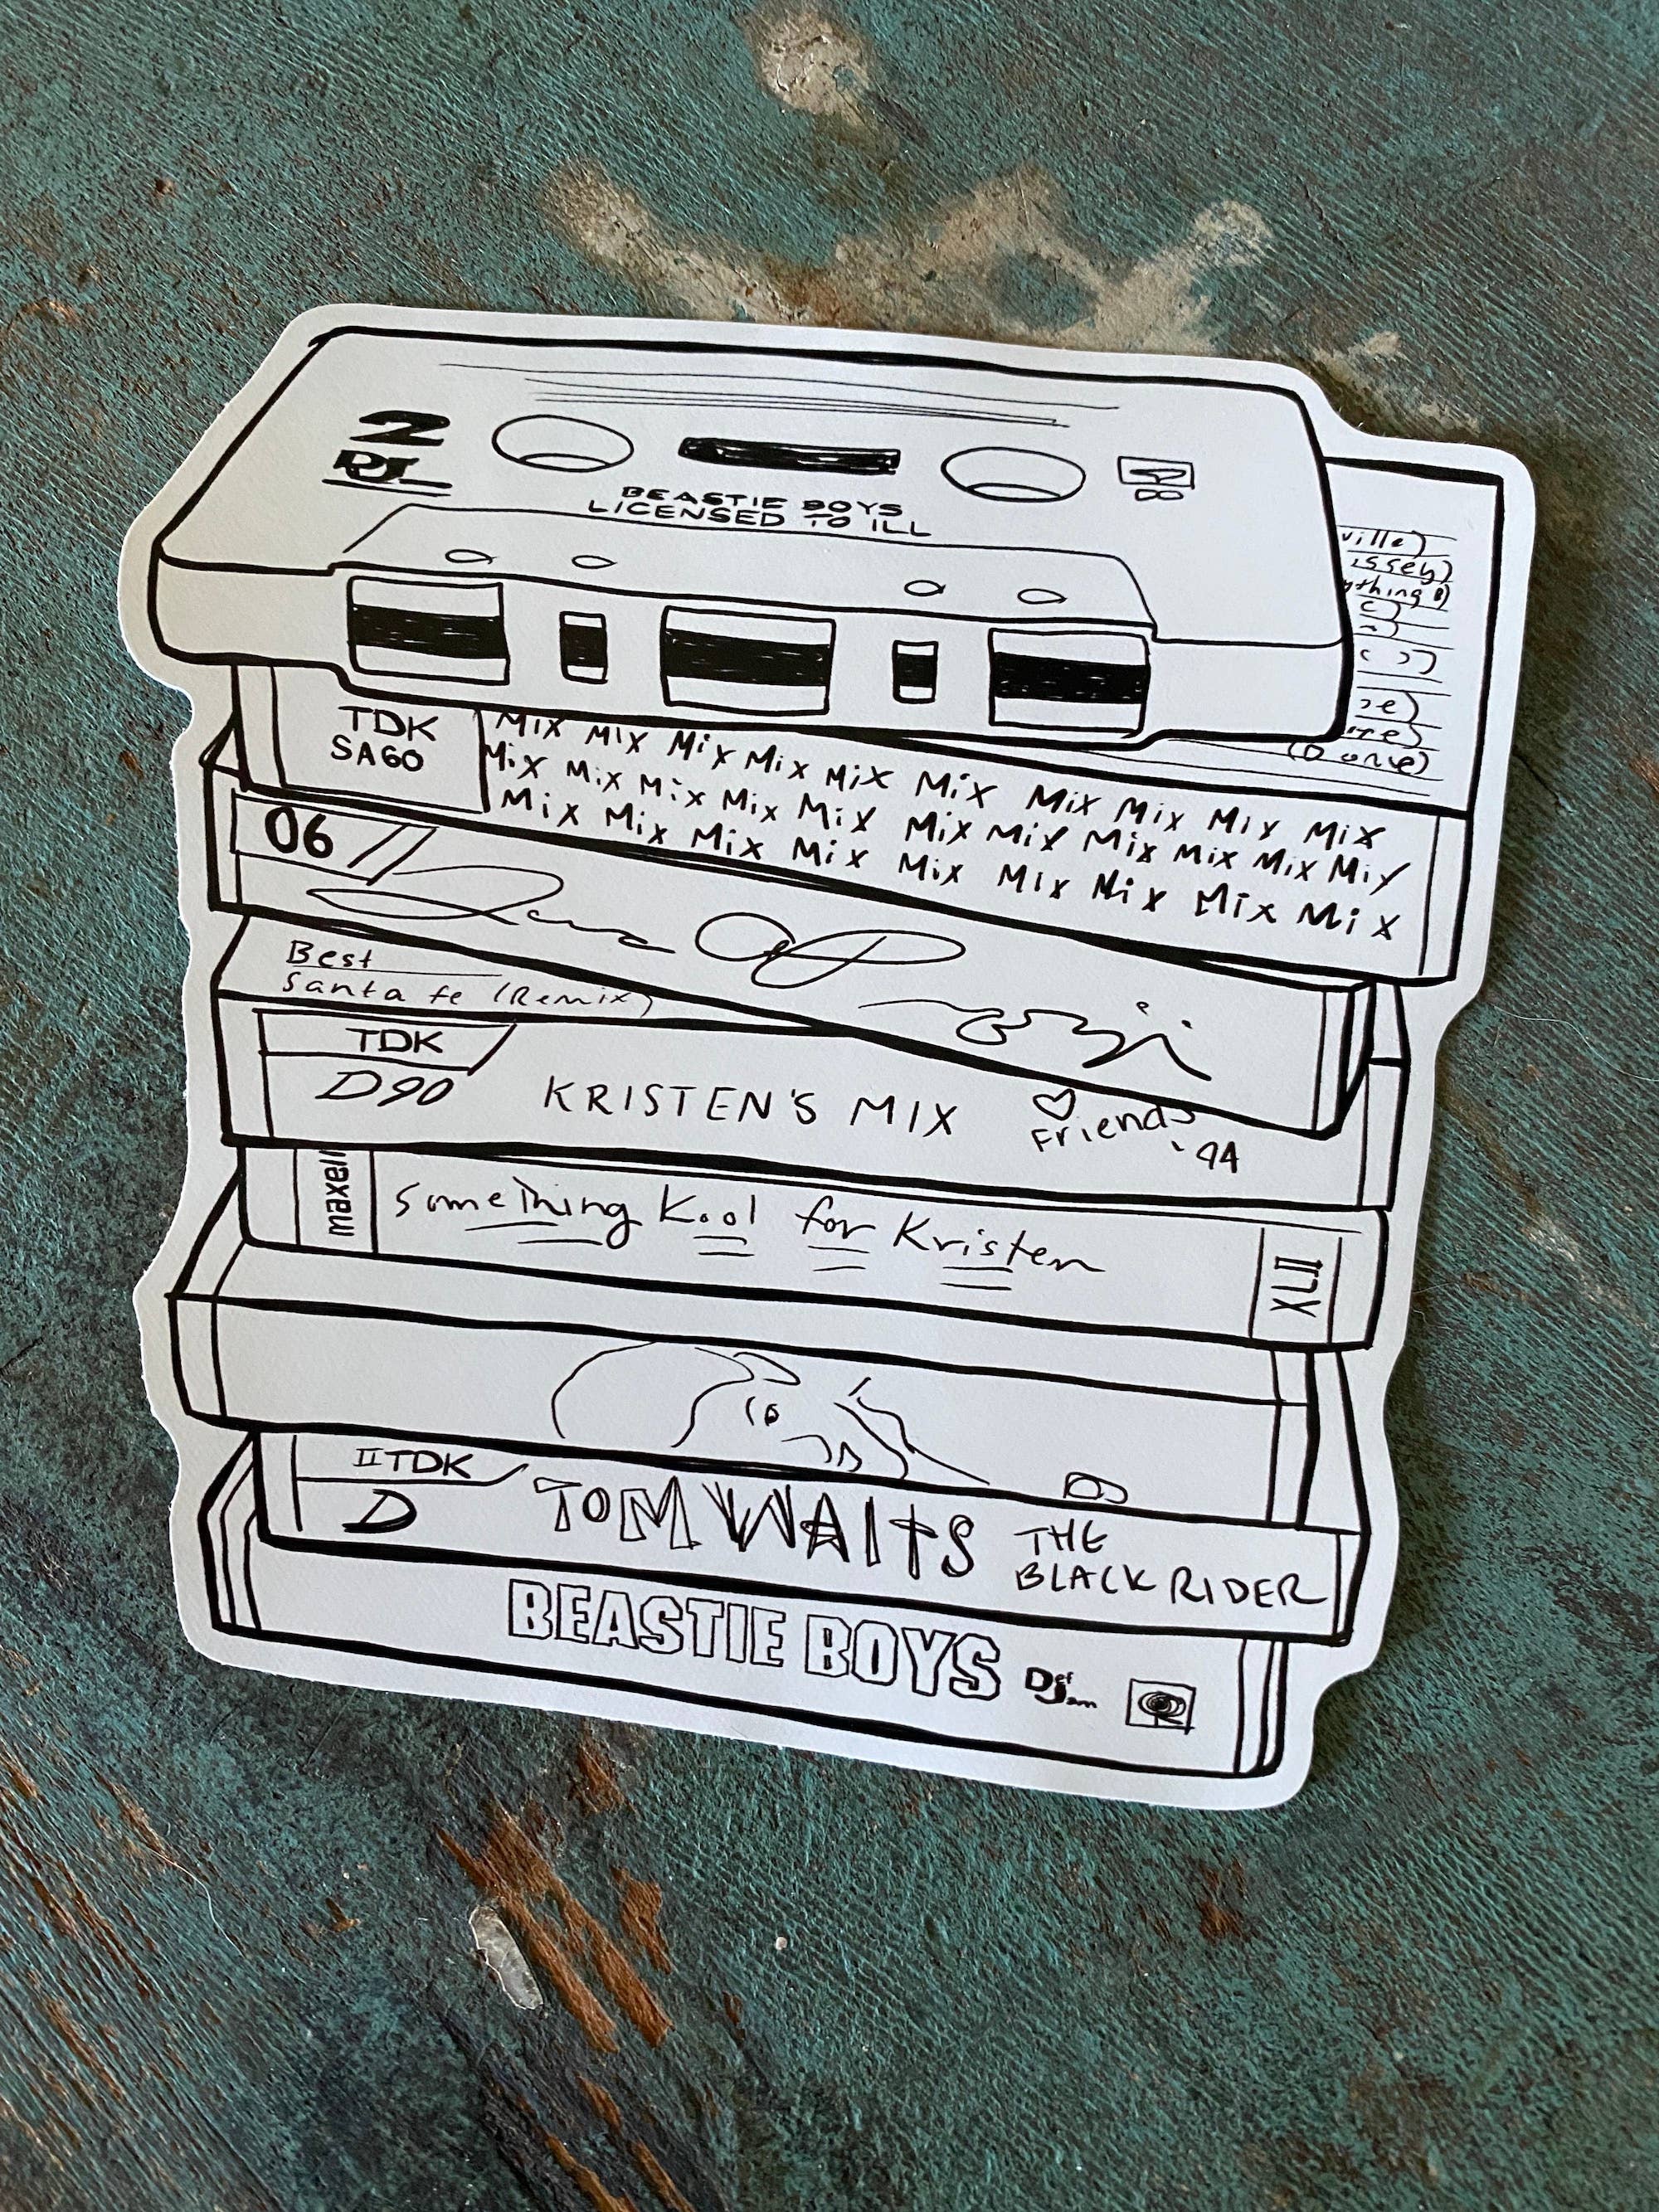 2
BEASTIE BOYS
LICENSED TO ILL
ville)
issey)
ything B)
TDK
SA60
Mix Mix Mix Mix Mix Mix Mix Mix Mix Mix
Mix Mix Mix Mix Mix Mix Mix Mix Mix Mix Mix
Mix Mix Mix Mix Mix Mix Mix Mix Mix
06
Best
Santa fe (Remix)
TDK
D90
KRISTEN'S MIX
Friends
'94
maxell
Something Kool for Kristen
XLII
IITDK
D
TOM WAITS
THE
BLACK RIDER
BEASTIE BOYS
Def
Jam